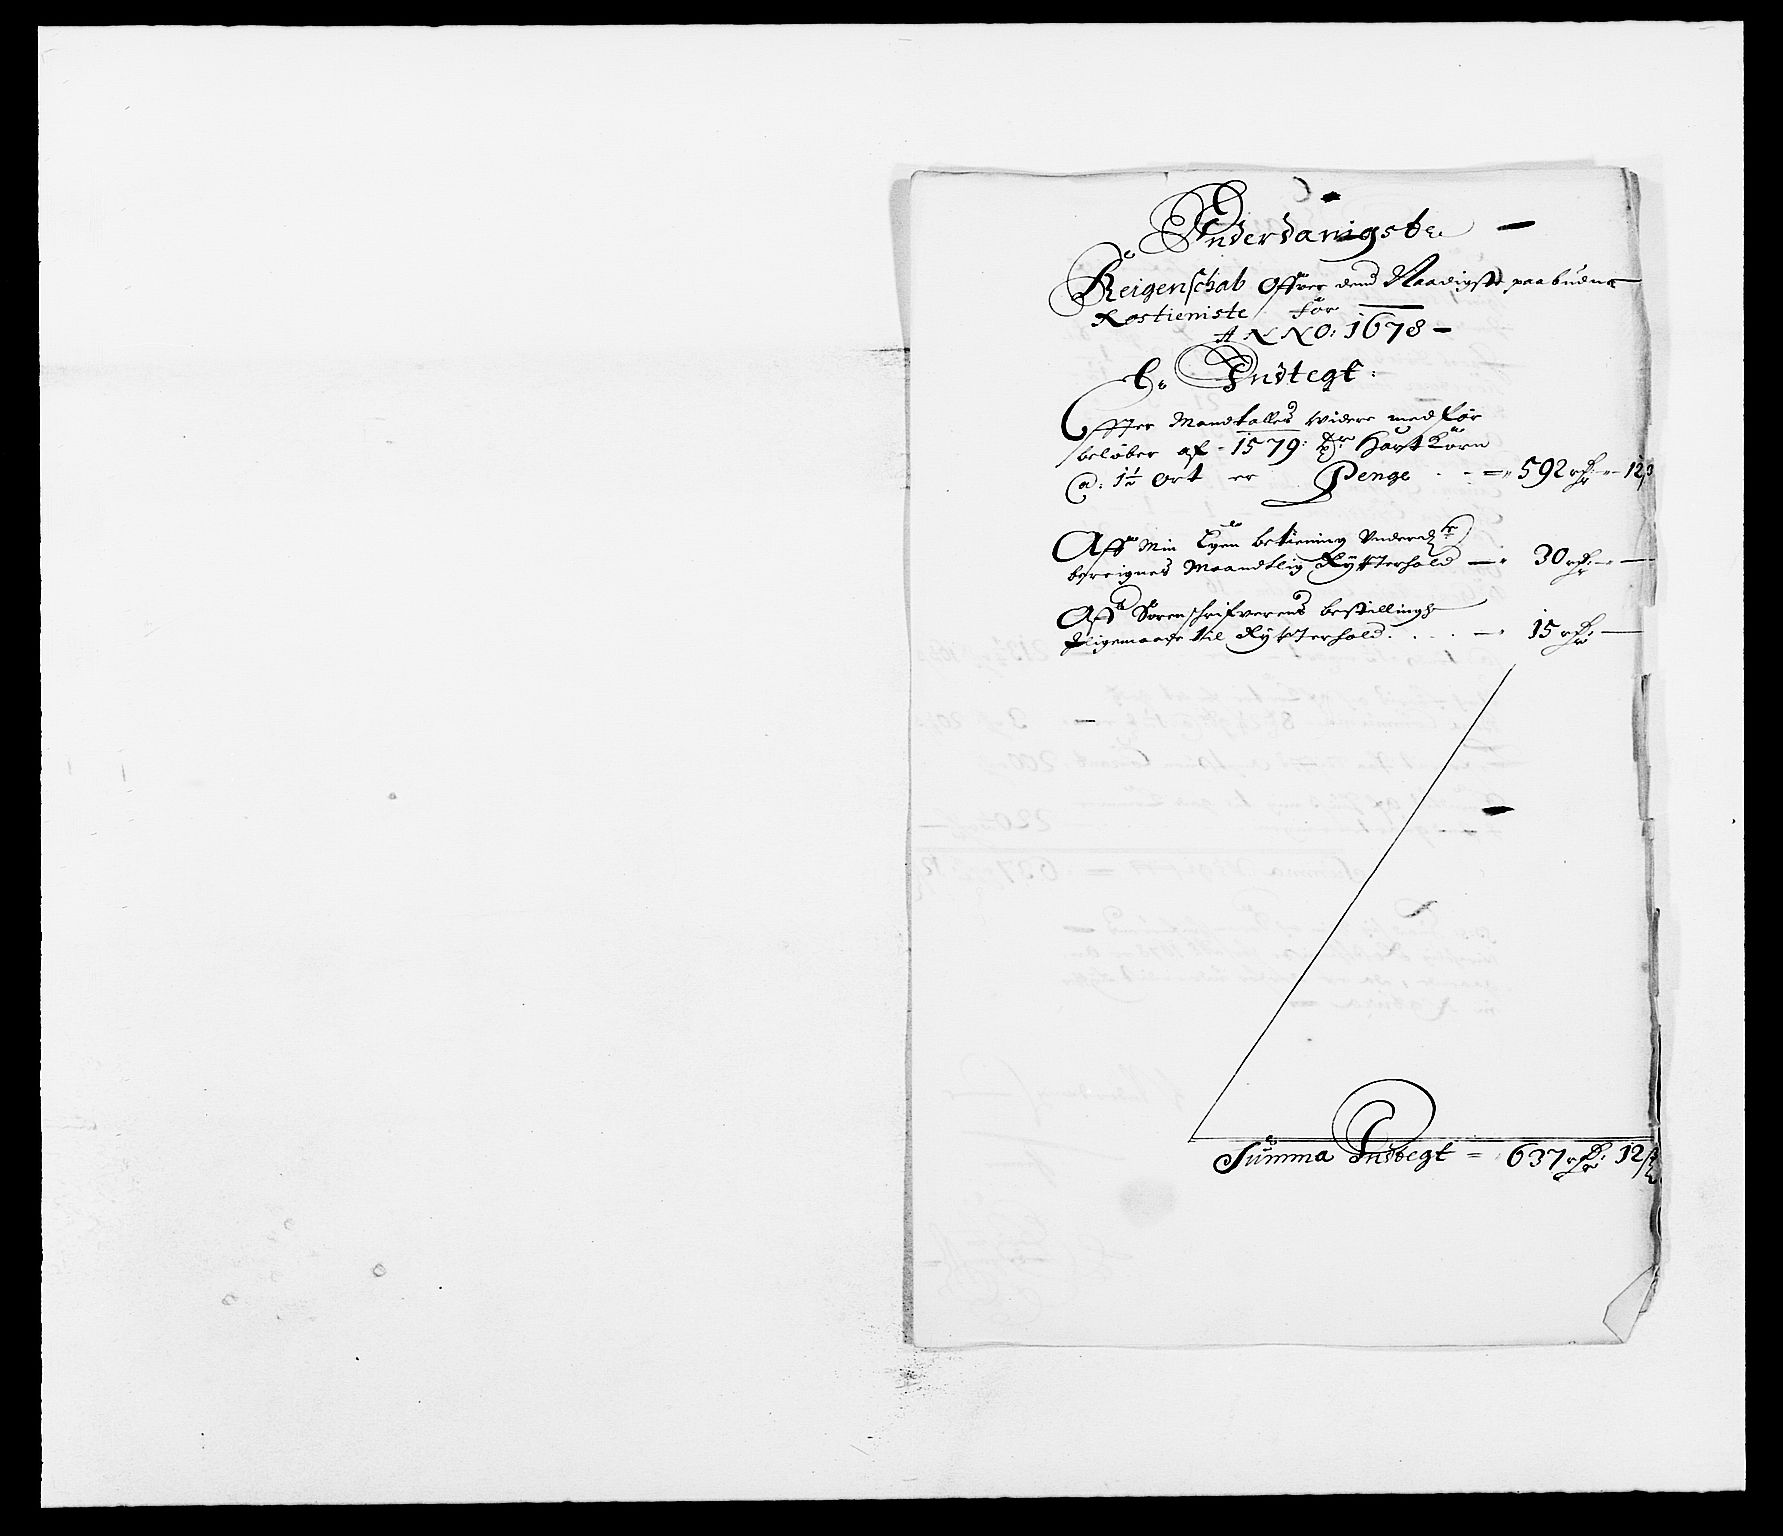 Underdanigste
Reigenschab Offver dend Naadigst paabudne
Rostieniste for
ANNO: 1678
Indtegt:
Effter Mandtallet Videre medfør
beløber af 1579: Tdr Hart Korn
a: 1½ Ort er Penge 592 rdr 12 s
Aff Min Egen betiening Vnder
beregnes Maandtlig Rytterhold 30 rdr
Aff Sorenschrifverens bestelling
Ligemaade til Rytterhold 15 rdr
Summa Indtegt 637 rdr 12 s